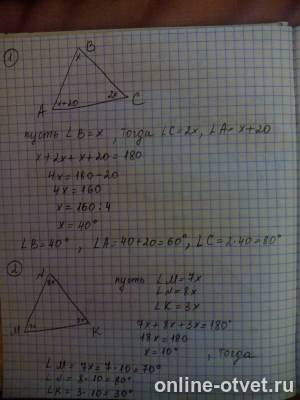 1
B
x
A
x+20
2x
C
пусть ∠B=x, Тогда ∠C=2x, ∠A=x+20
x+2x+x+20=180
4x=180-20
4x=160
x=160:4
x=40°
∠B=40°, ∠A=40+20=60°, ∠C=2·40=80°
2
N
8x
M
K
пусть ∠M=7x
∠N=8x
∠K=3x
7x+8x+3x=180°
18x=180
x=10°, Тогда
∠M=7x=7·10=70°
∠N=8·10=80°
∠K=3·10=30°
online-otvet.ru